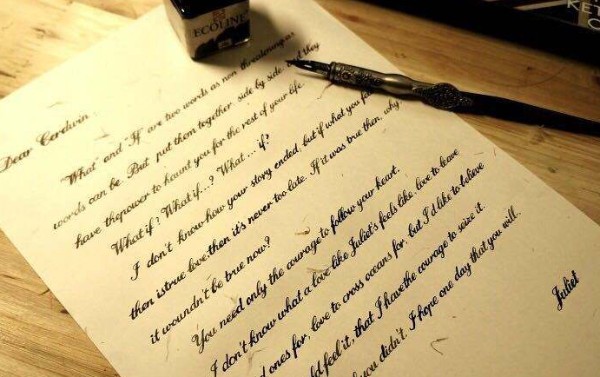 ECOLINE
KE
C
Dear Cerdwin
"What" and "If" are two words as non threatening as
words can be. But put them together side by side and they
have thepower to haunt you for the rest of your life
What if? What if...? What ... if?
I don't know how your story ended. but if what you f
then istrue love then it's never too late. If it was true then, why
it woundn't be true now?
You need only the courage to follow your heart.
I don't know what a love like Juliet's feels like, love to leave
d ones for, love to cross oceans for, but I'd like to believe
ld feel it, that I have the courage to seize it.
you didn't. I hope one day that you will.
Juliet